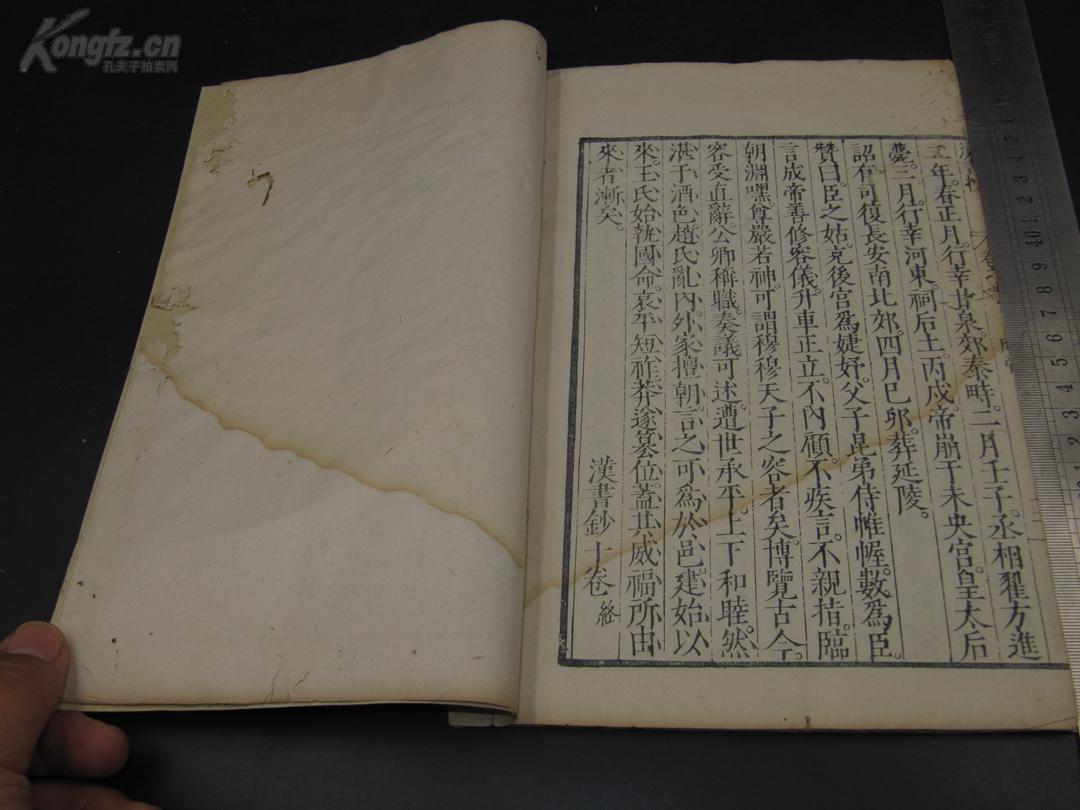 Kongfz.cn
孔夫子拍卖网
二年。春正月。行幸甘泉。郊泰畤。二月壬子。丞相翟方進
薨。三月。行幸河東。祠后土。丙戌。帝崩于未央宮。皇太后
詔有司復長安南北郊。四月己卯。葬延陵。
贊曰。臣之姑。充後宮爲婕妤。父子昆弟侍帷幄。數爲臣
言成帝善修容儀。升車正立。不內顧。不疾言。不親指。臨
朝淵嘿。尊嚴若神。可謂穆穆天子之容者矣。博覽古今。
容受直辭。公卿稱職。奏議可述。遭世承平。上下和睦。然
湛于酒色。趙氏亂內。外家擅朝。言之可爲於邑。建始以
來。王氏始執國命。哀平短祚。莽遂篡位。蓋其威福所由
來者漸矣。
漢書鈔十卷 終